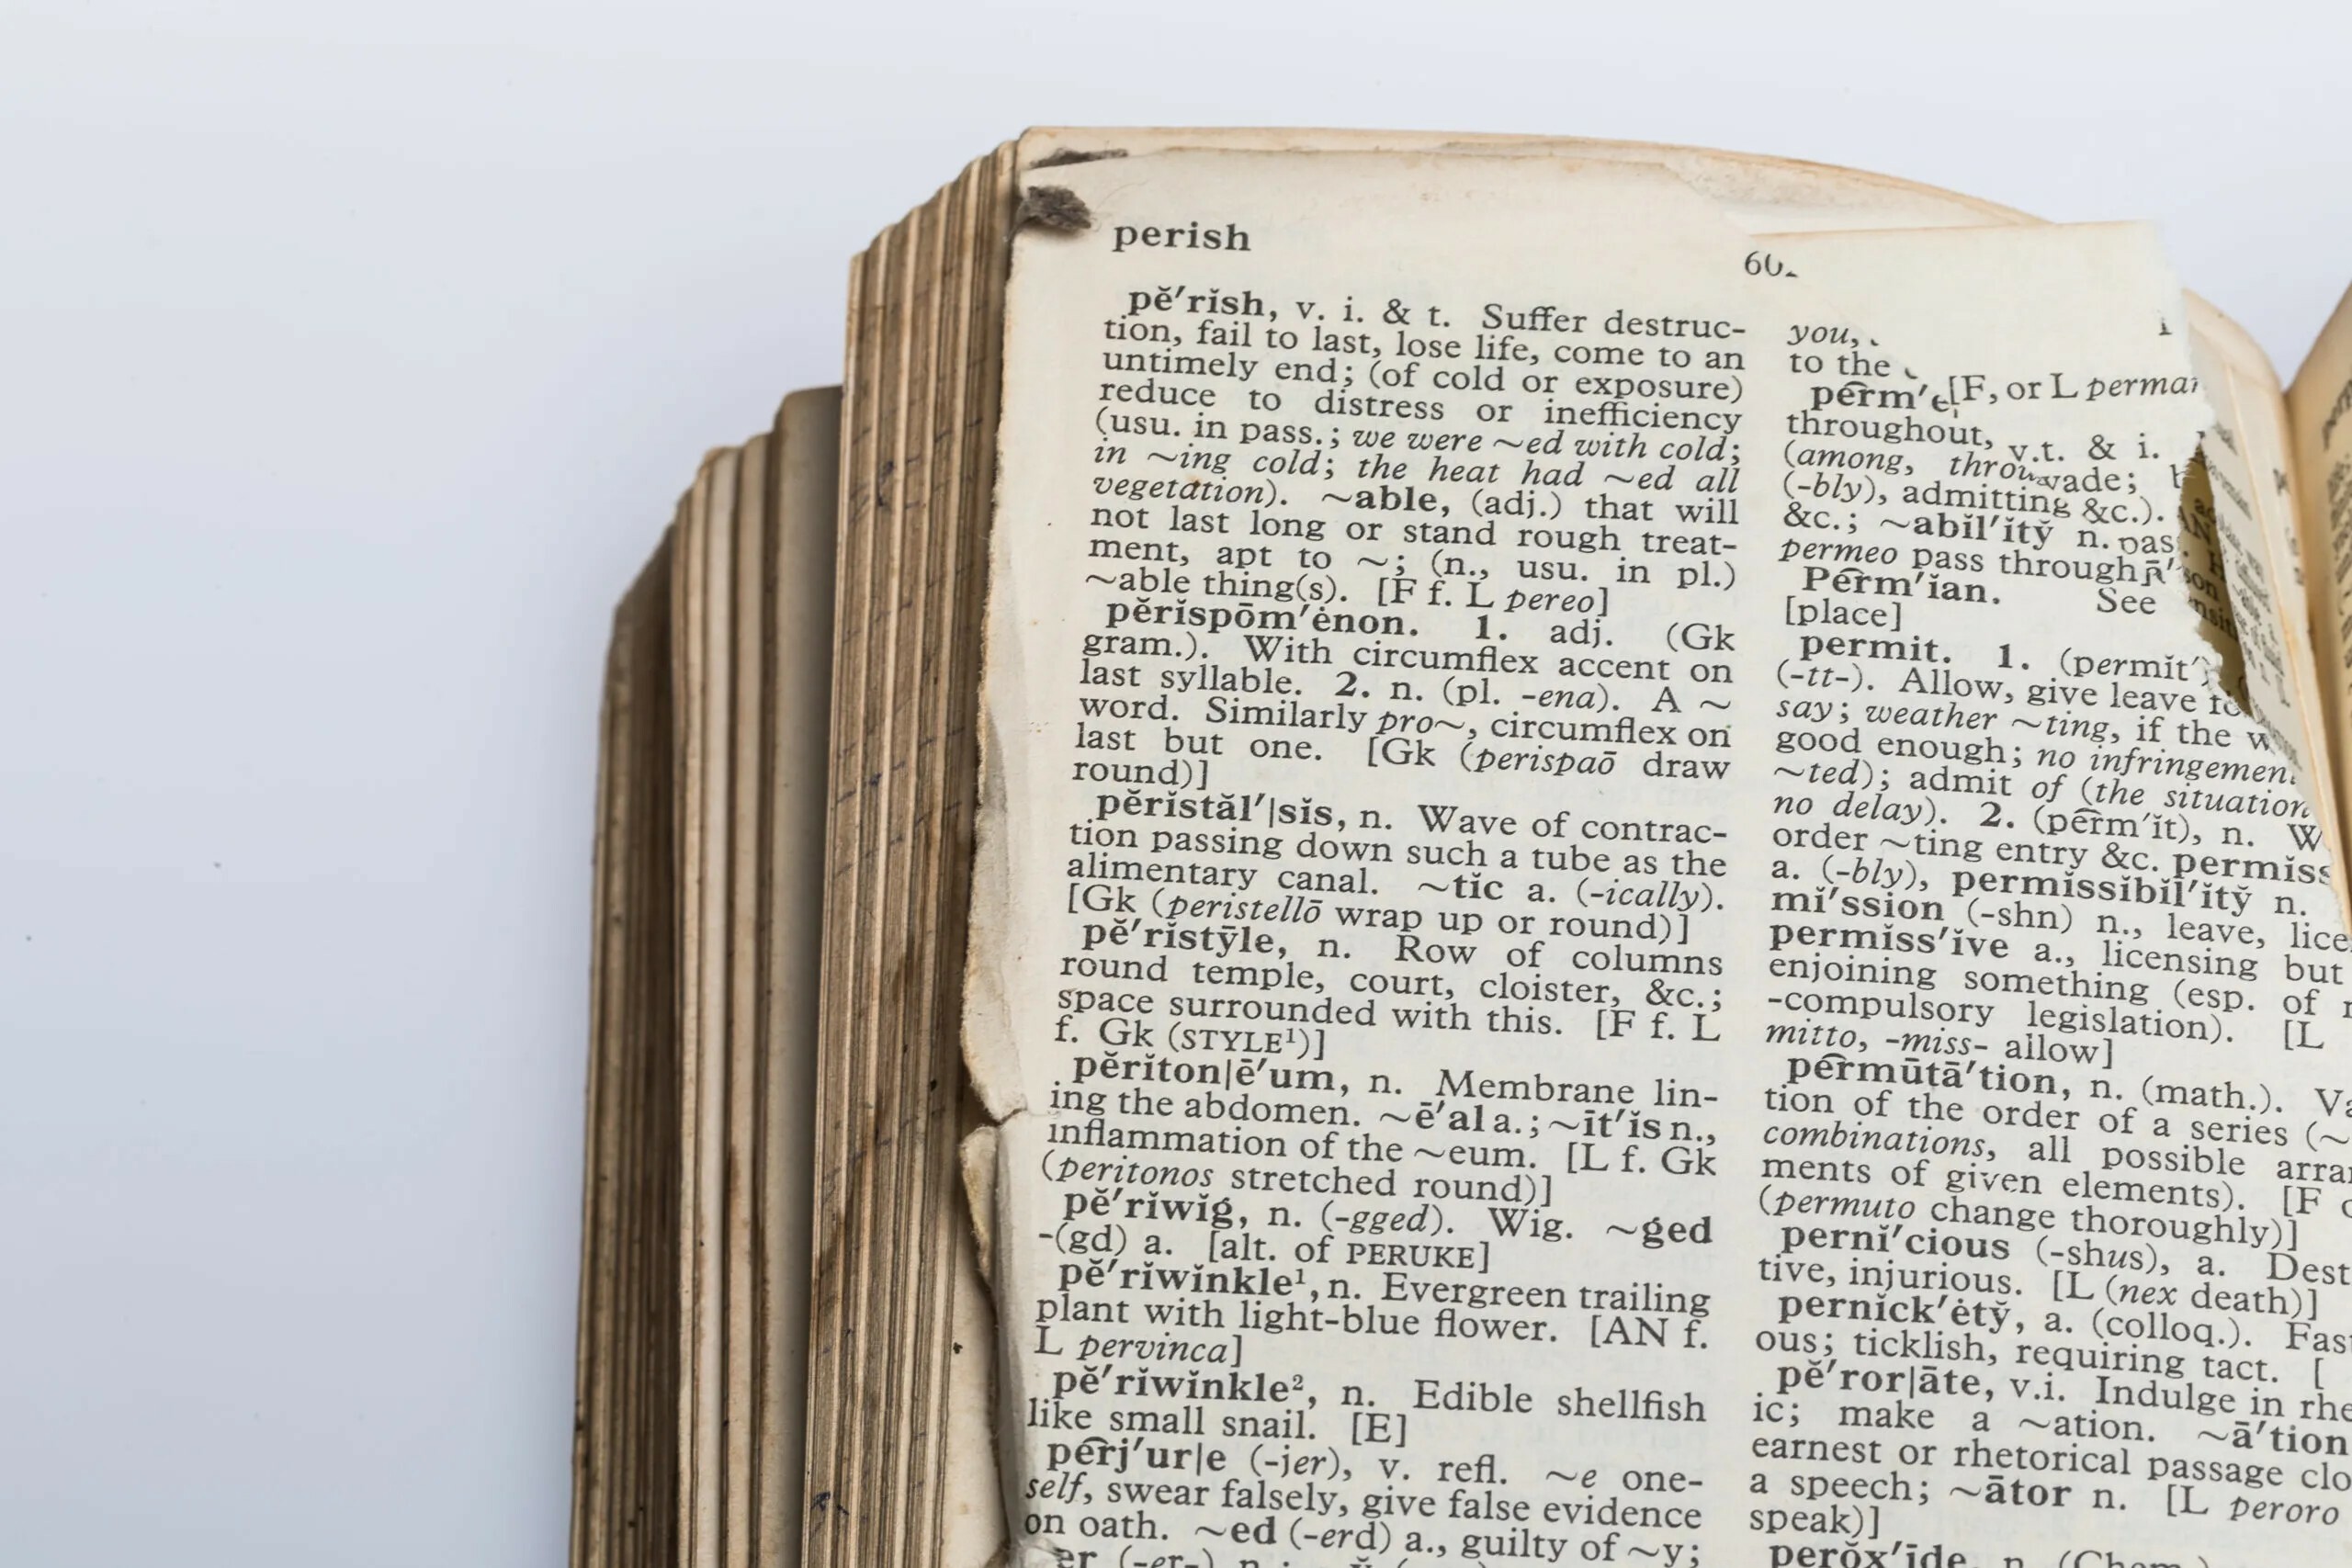 perish
pĕ′rĭsh, v. i. & t. Suffer destruc-
tion, fail to last, lose life, come to an
untimely end; (of cold or exposure)
reduce to distress or inefficiency
(usu. in pass.; we were ~ed with cold;
in ~ing cold; the heat had ~ed all
vegetation). ~able, (adj.) that will
not last long or stand rough treat-
ment, apt to ~; (n., usu. in pl.)
~able thing(s). [F f. L pereo]
pĕrispōm′ėnon. 1. adj. (Gk
gram.). With circumflex accent on
last syllable. 2. n. (pl. -ena). A ~
word. Similarly pro~, circumflex on
last but one. [Gk (perispaō draw
round)]
pĕristăl′|sĭs, n. Wave of contrac-
tion passing down such a tube as the
alimentary canal. ~tĭc a. (-ically).
[Gk (peristellō wrap up or round)]
pĕ′rĭstȳle, n. Row of columns
round temple, court, cloister, &c.;
space surrounded with this. [F f. L
f. Gk (STYLE¹)]
pĕrĭton|ē′um, n. Membrane lin-
ing the abdomen. ~ē′al a.; ~īt′ĭs n.,
inflammation of the ~eum. [L f. Gk
(peritonos stretched round)]
pĕ′rĭwĭg, n. (-gged). Wig. ~ged
-(gd) a. [alt. of PERUKE]
pĕ′rĭwĭnkle¹, n. Evergreen trailing
plant with light-blue flower. [AN f.
L pervinca]
pĕ′rĭwĭnkle², n. Edible shellfish
like small snail. [E]
pêrj′ur|e (-jer), v. refl. ~e one-
self, swear falsely, give false evidence
on oath. ~ed (-erd) a., guilty of ~y;
you,
to the
[F, or L
throughout, v.t. & i.
(among,
(-bly), admitting &c.).
&c.; ~abĭl′ĭtў n.
permeo pass through
Pêrm′ĭan. See
[place]
permit. 1. (permĭt′)
(-tt-). Allow, give leave
say; weather ~ting, if the
good enough; no infringement
~ted); admit of (the situation
no delay). 2. (pêrm′ĭt), n.
order ~ting entry &c.
a. (-bly), permĭssĭbĭl′ĭtў n.
mĭ′ssion (-shn) n., leave,
permĭss′ĭve a., licensing but
enjoining something (esp. of
-compulsory legislation). [L
mitto, -miss- allow]
pêrmūtā′tion, n. (math.).
tion of the order of a series (~
combinations, all possible
ments of given elements). [F
(permuto change thoroughly)]
pernĭ′cious (-shus), a.
tive, injurious. [L (nex death)]
pernĭck′ėtў, a. (colloq.).
ous; ticklish, requiring tact. [
pĕ′ror|āte, v.i. Indulge in
ic; make a ~ation. ~ā′tion
earnest or rhetorical passage
a speech; ~ātor n. [L peroro
speak)]
perŏx′īde, n. (Chem.)